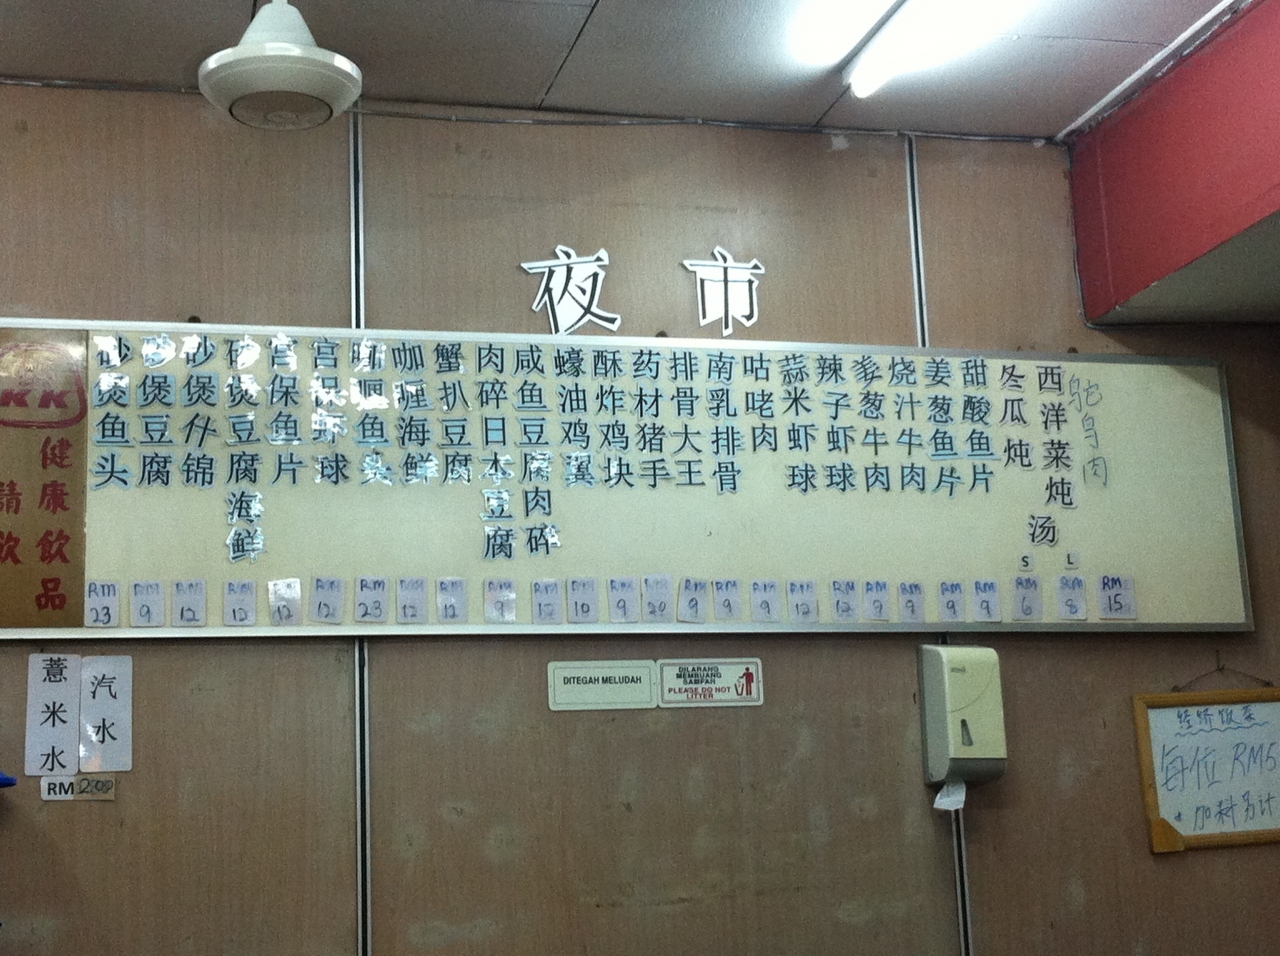 夜市
砂煲鱼头
砂煲豆腐
砂煲什锦
砂煲豆腐海鲜
宫保鱼片
宫保虾球
咖喱鱼头
咖喱海鲜
蟹扒豆腐
肉碎日本豆腐
咸鱼豆腐肉碎
蠔油鸡翼
酥炸鸡块
药材猪手
排骨大王
南乳排骨
咕咾肉
蒜米虾球
辣子虾球
姜葱牛肉
烧汁牛肉
姜葱鱼片
甜酸鱼片
冬瓜炖
西洋菜炖
汤
鸵鸟肉
S
L
RM 23
RM 9
RM 12
RM 12
RM 12
RM 12
RM 23
RM 12
RM 12
RM 9
RM 12
RM 10
RM 9
RM 20
RM 9
RM 9
RM 9
RM 12
RM 12
RM 9
RM 9
RM 9
RM 9
RM 6
RM 8
RM 15
KK
健康飲品
請飲
薏米水
汽水
RM 2.00
DITEGAH MELUDAH
DILARANG
MEMBUANG
SAMPAH
PLEASE DO NOT
LITTER
经济饭菜
每位 RM5
加料另计